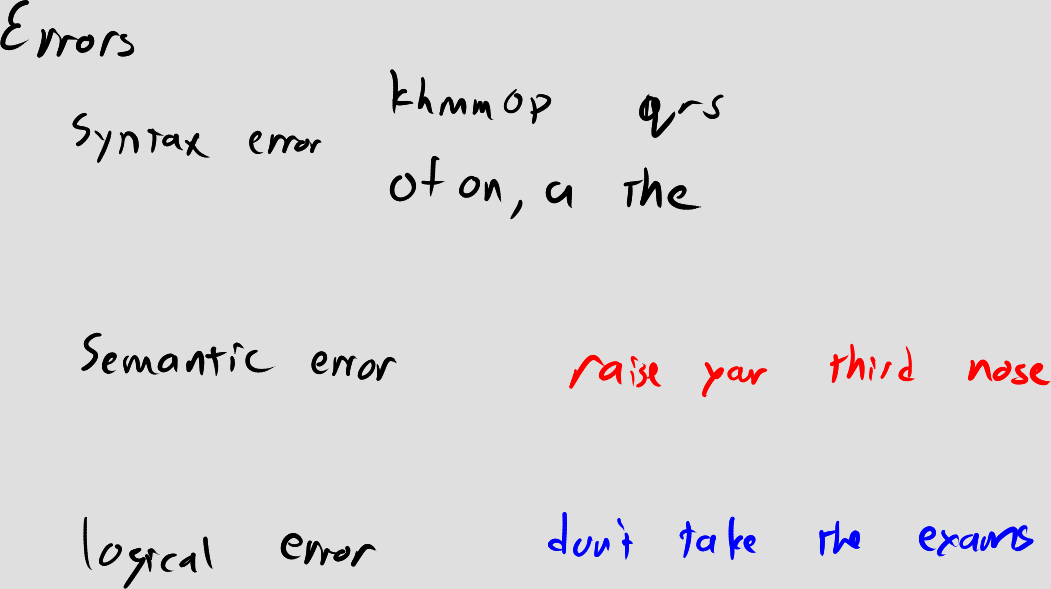 Errors
Syntax error khmmop qrs
of on, a the
Semantic error raise your third nose
logical error don't take the exams